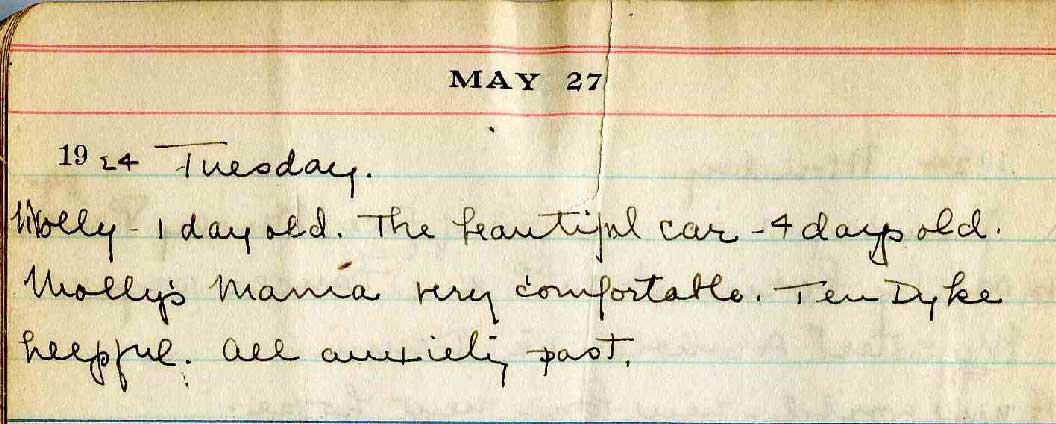 MAY 27
1924 Tuesday.
Molly - 1 day old. The beautiful car - 4 days old.
Molly's Mama very comfortable. Ten Dyke
helpful. All anxiety past.